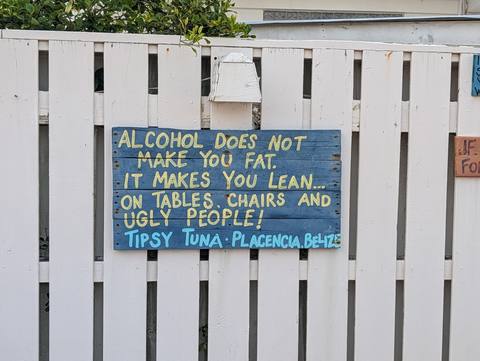 ALCOHOL DOES NOT
MAKE YOU FAT.
IT MAKES YOU LEAN...
ON TABLES, CHAIRS AND
UGLY PEOPLE!
TIPSY TUNA · PLACENCIA, BELIZE
IF